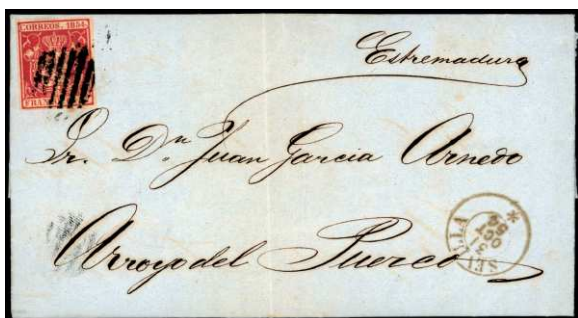 CORREOS. 1854
Estremadura
Sr. Dn. Juan Garcia Arnedo
Arroyo del Puerco
SEVILLA